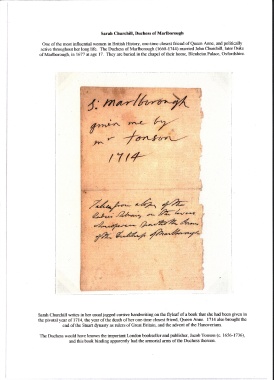 Sarah Churchill, Duchess of Marlborough
One of the most influential women in British History, one-time closest friend of Queen Anne, and politically
active throughout her long life. The Duchess of Marlborough (1660-1744) married John Churchill, later Duke
of Marlborough, in 1677 at age 17. They are buried in the chapel of their home, Blenheim Palace, Oxfordshire.
S: Marlborough
given me by
mr tonson
1714
Taken from a
of the Dutchess of Marlborough
Sarah Churchill writes in her usual jagged cursive handwriting on the flyleaf of a book that she had been given in
the pivotal year of 1714, the year of the death of her one-time closest friend, Queen Anne. 1714 also brought the
end of the Stuart dynasty as rulers of Great Britain, and the advent of the Hanoverians.
The Duchess would have known the important London bookseller and publisher, Jacob Tonson (c. 1656-1736),
and this book binding apparently had the armorial arms of the Duchess thereon.